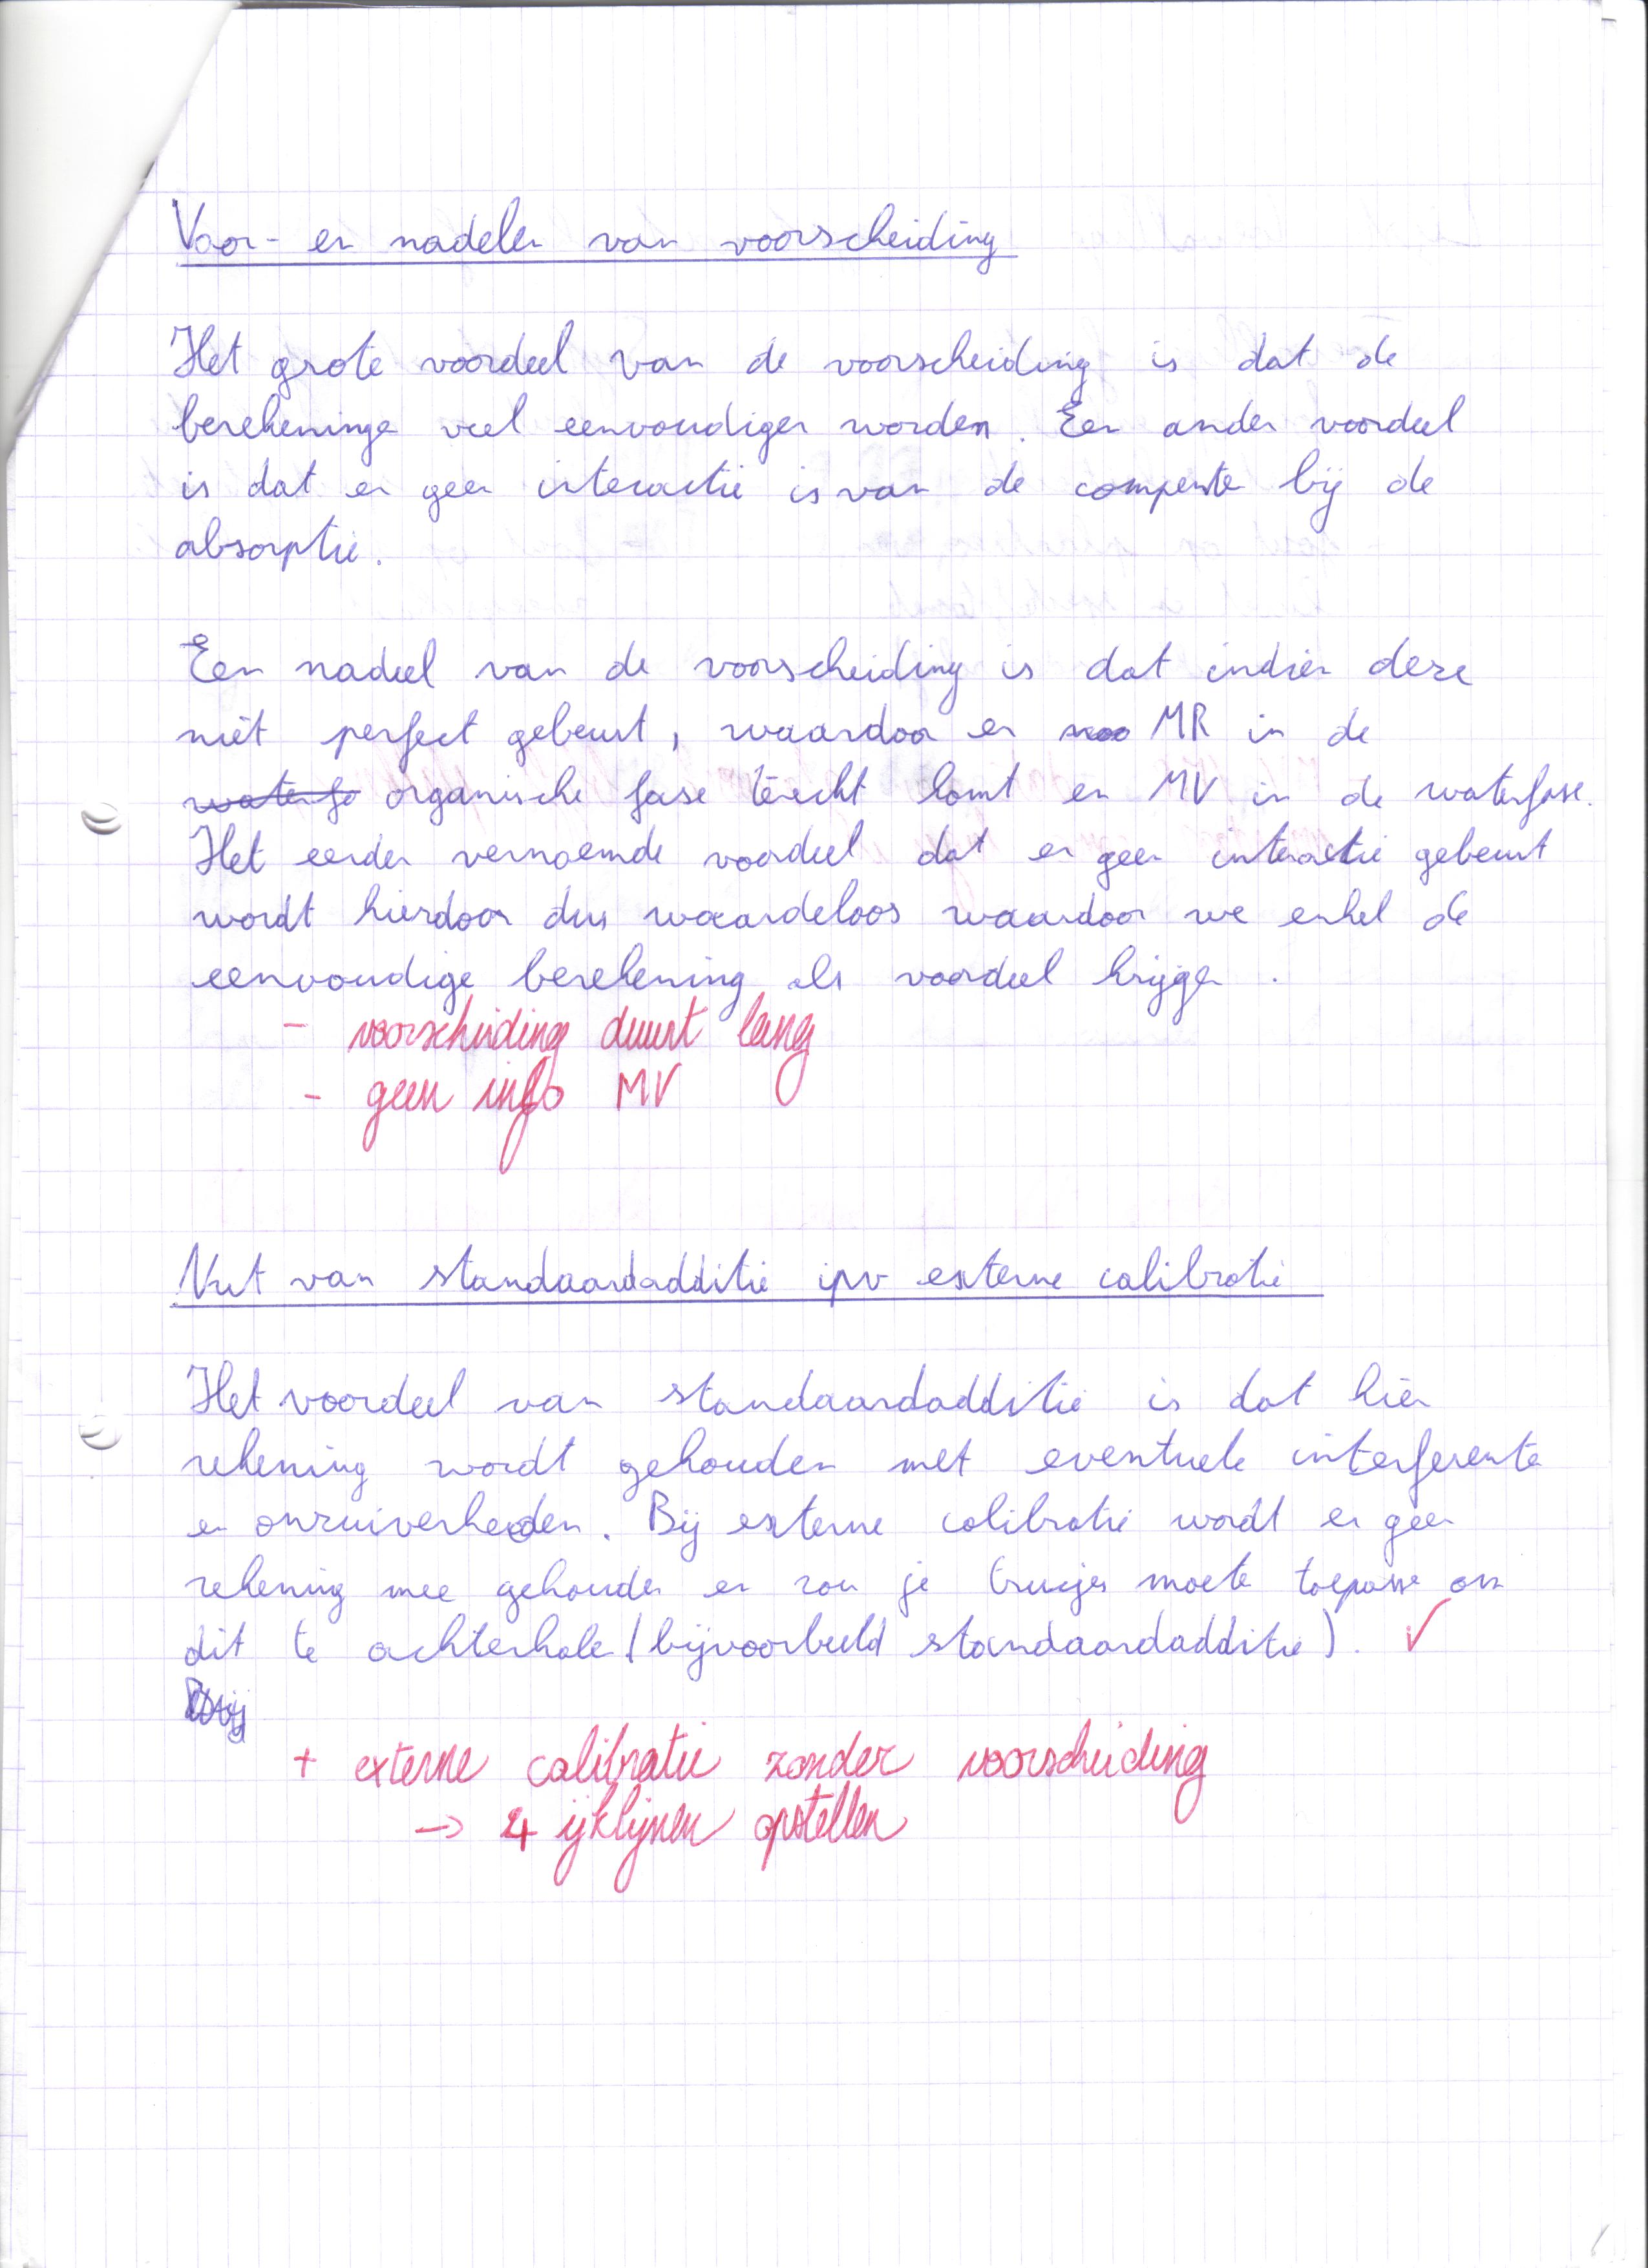 Voor- en nadelen van voorscheiding
Het grote voordeel van de voorscheiding is dat de
berekeningen veel eenvoudiger worden. Een ander voordeel
is dat er geen interactie is van de componenten bij de
absorptie.
Een nadeel van de voorscheiding is dat indien deze
niet perfect gebeurt, waardoor er MR in de
organische fase terecht komt en MV in de waterfase.
Het eerder vernoemde voordeel dat er geen interactie gebeurt
wordt hierdoor dus waardeloos waardoor we enkel de
eenvoudige berekening als voordeel krijgen.
- voorscheiding duurt lang
- geen info MV
Nut van standaardadditie ipv externe calibratie
Het voordeel van standaardadditie is dat hier
rekening wordt gehouden met eventuele interferenten
en onzuiverheden. Bij externe calibratie wordt er geen
rekening mee gehouden en zou je trucjes moeten toepassen om
dit te achterhalen (bijvoorbeeld standaardadditie). ✓
+ externe calibratie zonder voorscheiding
→ 4 ijklijnen opstellen